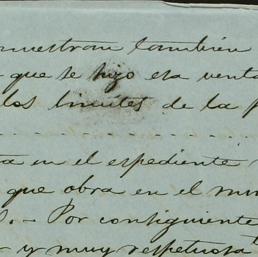 muestran también
que se hizo esa venta
los limites de la p
ta en el espediente
que obra en el mu
. - Por consiguiente
y muy respetuosa